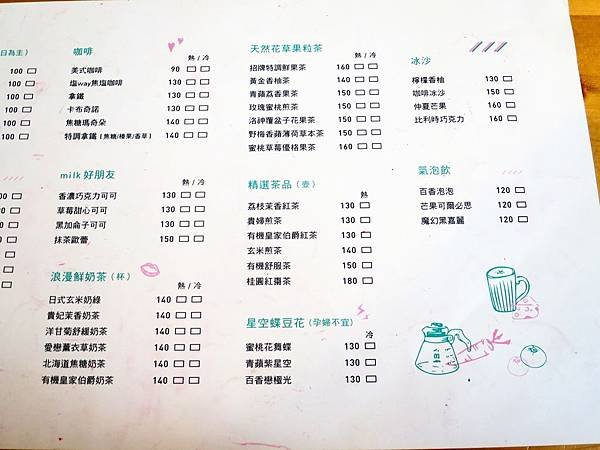 日為主）
100 □
100 □
100 □
100 □
100 □
100 □
咖啡
熱 / 冷
美式咖啡 90 □ □
塩way焦塩咖啡 130 □ □
拿鐵 130 □ □
卡布奇諾 130 □ □
焦糖瑪奇朵 140 □ □
特調拿鐵（焦糖/榛果/香草） 140 □ □
milk 好朋友
熱 / 冷
香濃巧克力可可 130 □ □
草莓甜心可可 130 □ □
黑加侖子可可 130 □ □
抹茶歐蕾 150 □ □
浪漫鮮奶茶（杯）
熱 / 冷
日式玄米奶綠 140 □ □
貴妃茉香奶茶 140 □ □
洋甘菊舒緩奶茶 140 □ □
愛戀薰衣草奶茶 140 □ □
北海道焦糖奶茶 140 □ □
有機皇家伯爵奶茶 140 □ □
天然花草果粒茶
熱 / 冷
招牌特調鮮果茶 160 □ □
黃金香柚茶 140 □ □
青蘋荔香果茶 150 □ □
玫瑰蜜桃煎茶 150 □ □
洛神覆盆子花果茶 150 □ □
野梅香蘋薄荷草本茶 150 □ □
蜜桃草莓優格果茶 160 □ □
精選茶品（壺）
熱
荔枝茉香紅茶 130 □
貴婦煎茶 130 □
有機皇家伯爵紅茶 130 □
玄米煎茶 150 □
有機舒服茶 150 □
桂圓紅棗茶 180 □
星空蝶豆花（孕婦不宜）
冷
蜜桃花舞蝶 130 □
青蘋紫星空 130 □
百香戀極光 130 □
冰沙
檸檬香柚 130 □
咖啡冰沙 150 □
仲夏芒果 160 □
比利時巧克力 160 □
氣泡飲
百香泡泡 120 □
芒果可爾必思 120 □
魔幻黑嘉麗 120 □